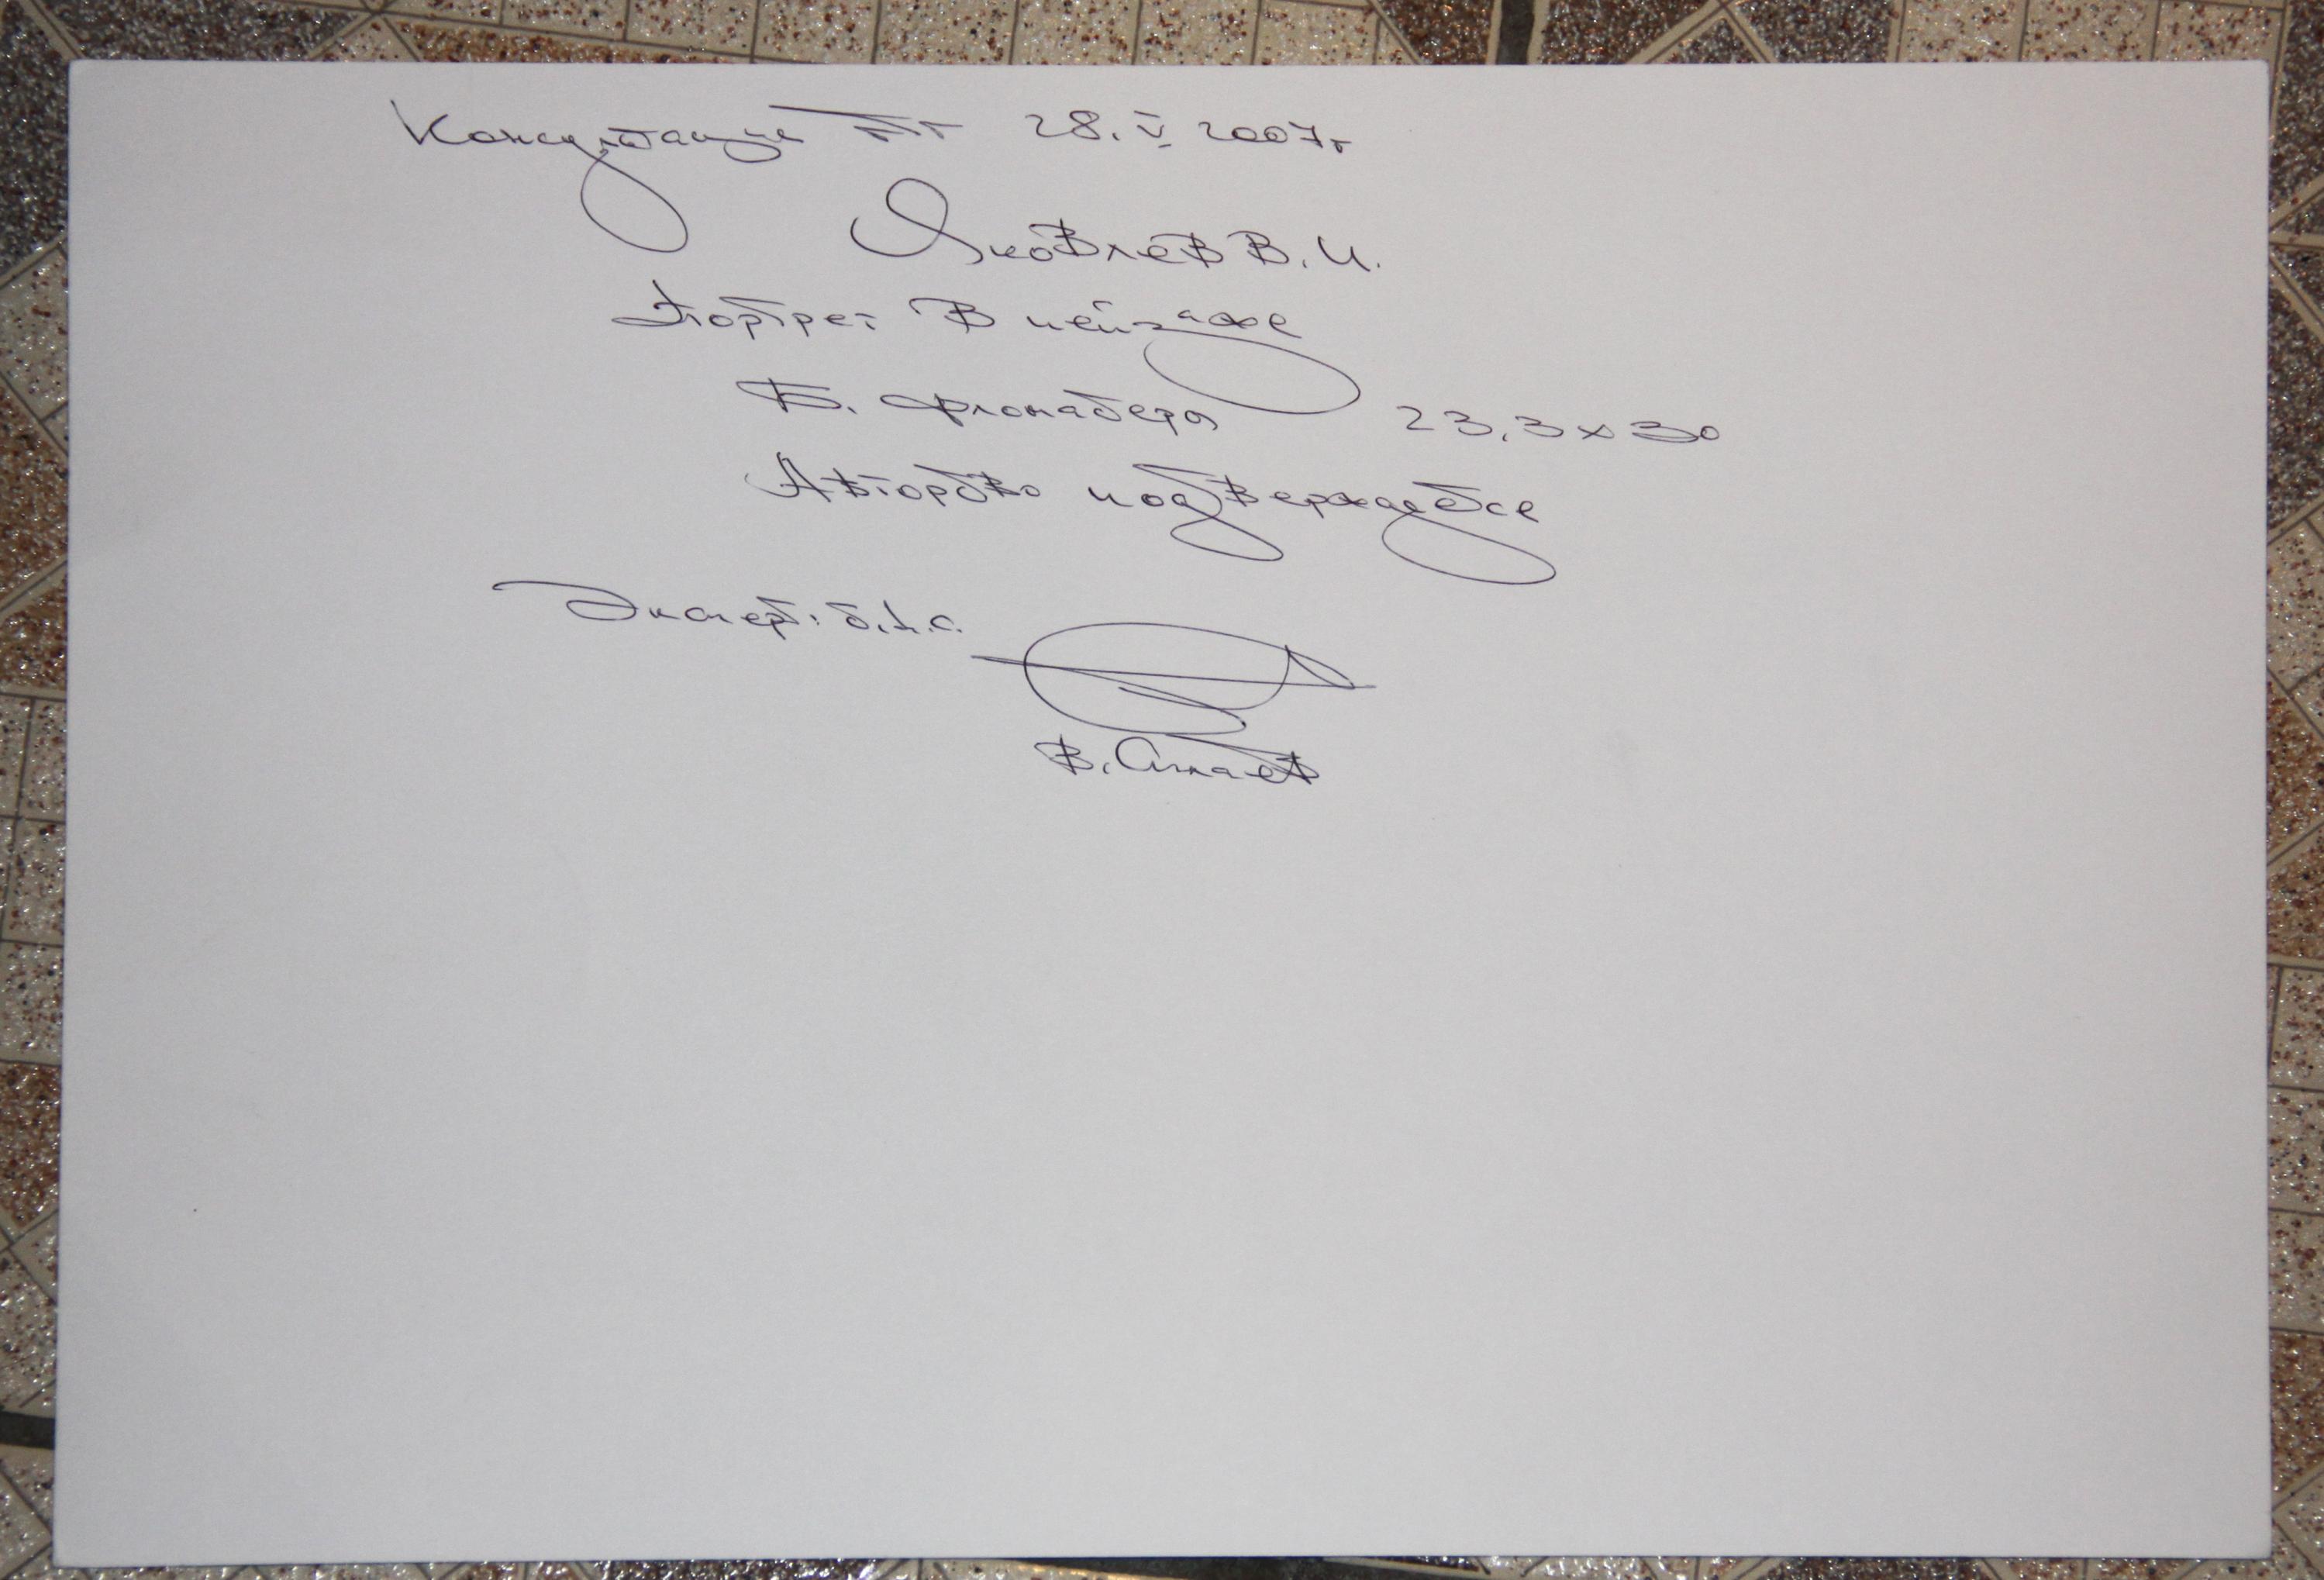 Консультация ТГ 28. V 2007г
Яковлев В. И.
Портрет в пейзаже
Б. фломастеры 23,3 x 30
Авторство подтверждается
Эксперт:
В. Силаев